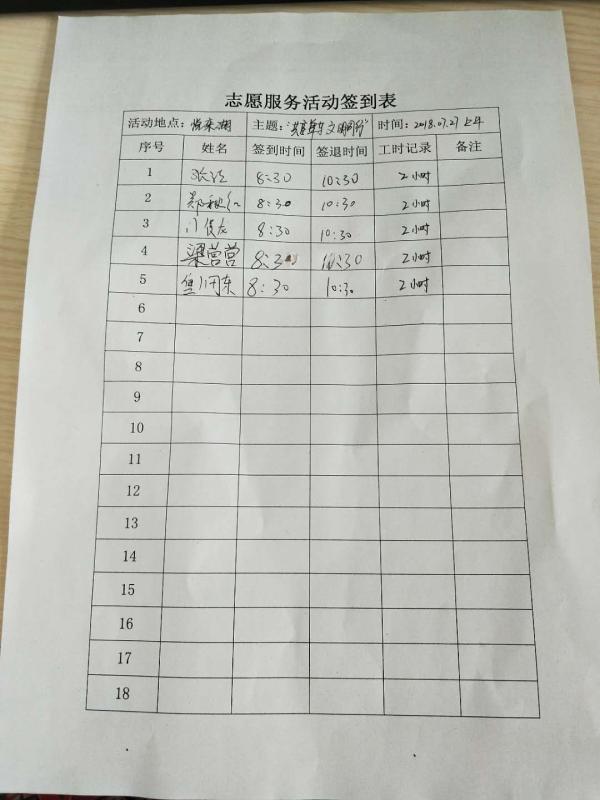 志愿服务活动签到表
活动地点：悦来湖 主题： 时间：2018.07.27 上午
序号 姓名 签到时间 签退时间 工时记录 备注
1 8:30 10:30 2小时
2 8:30 10:30 2小时
3 8:30 10:30 2小时
4 梁营营 8:30 10:30 2小时
5 8:30 10:30 2小时
6
7
8
9
10
11
12
13
14
15
16
17
18